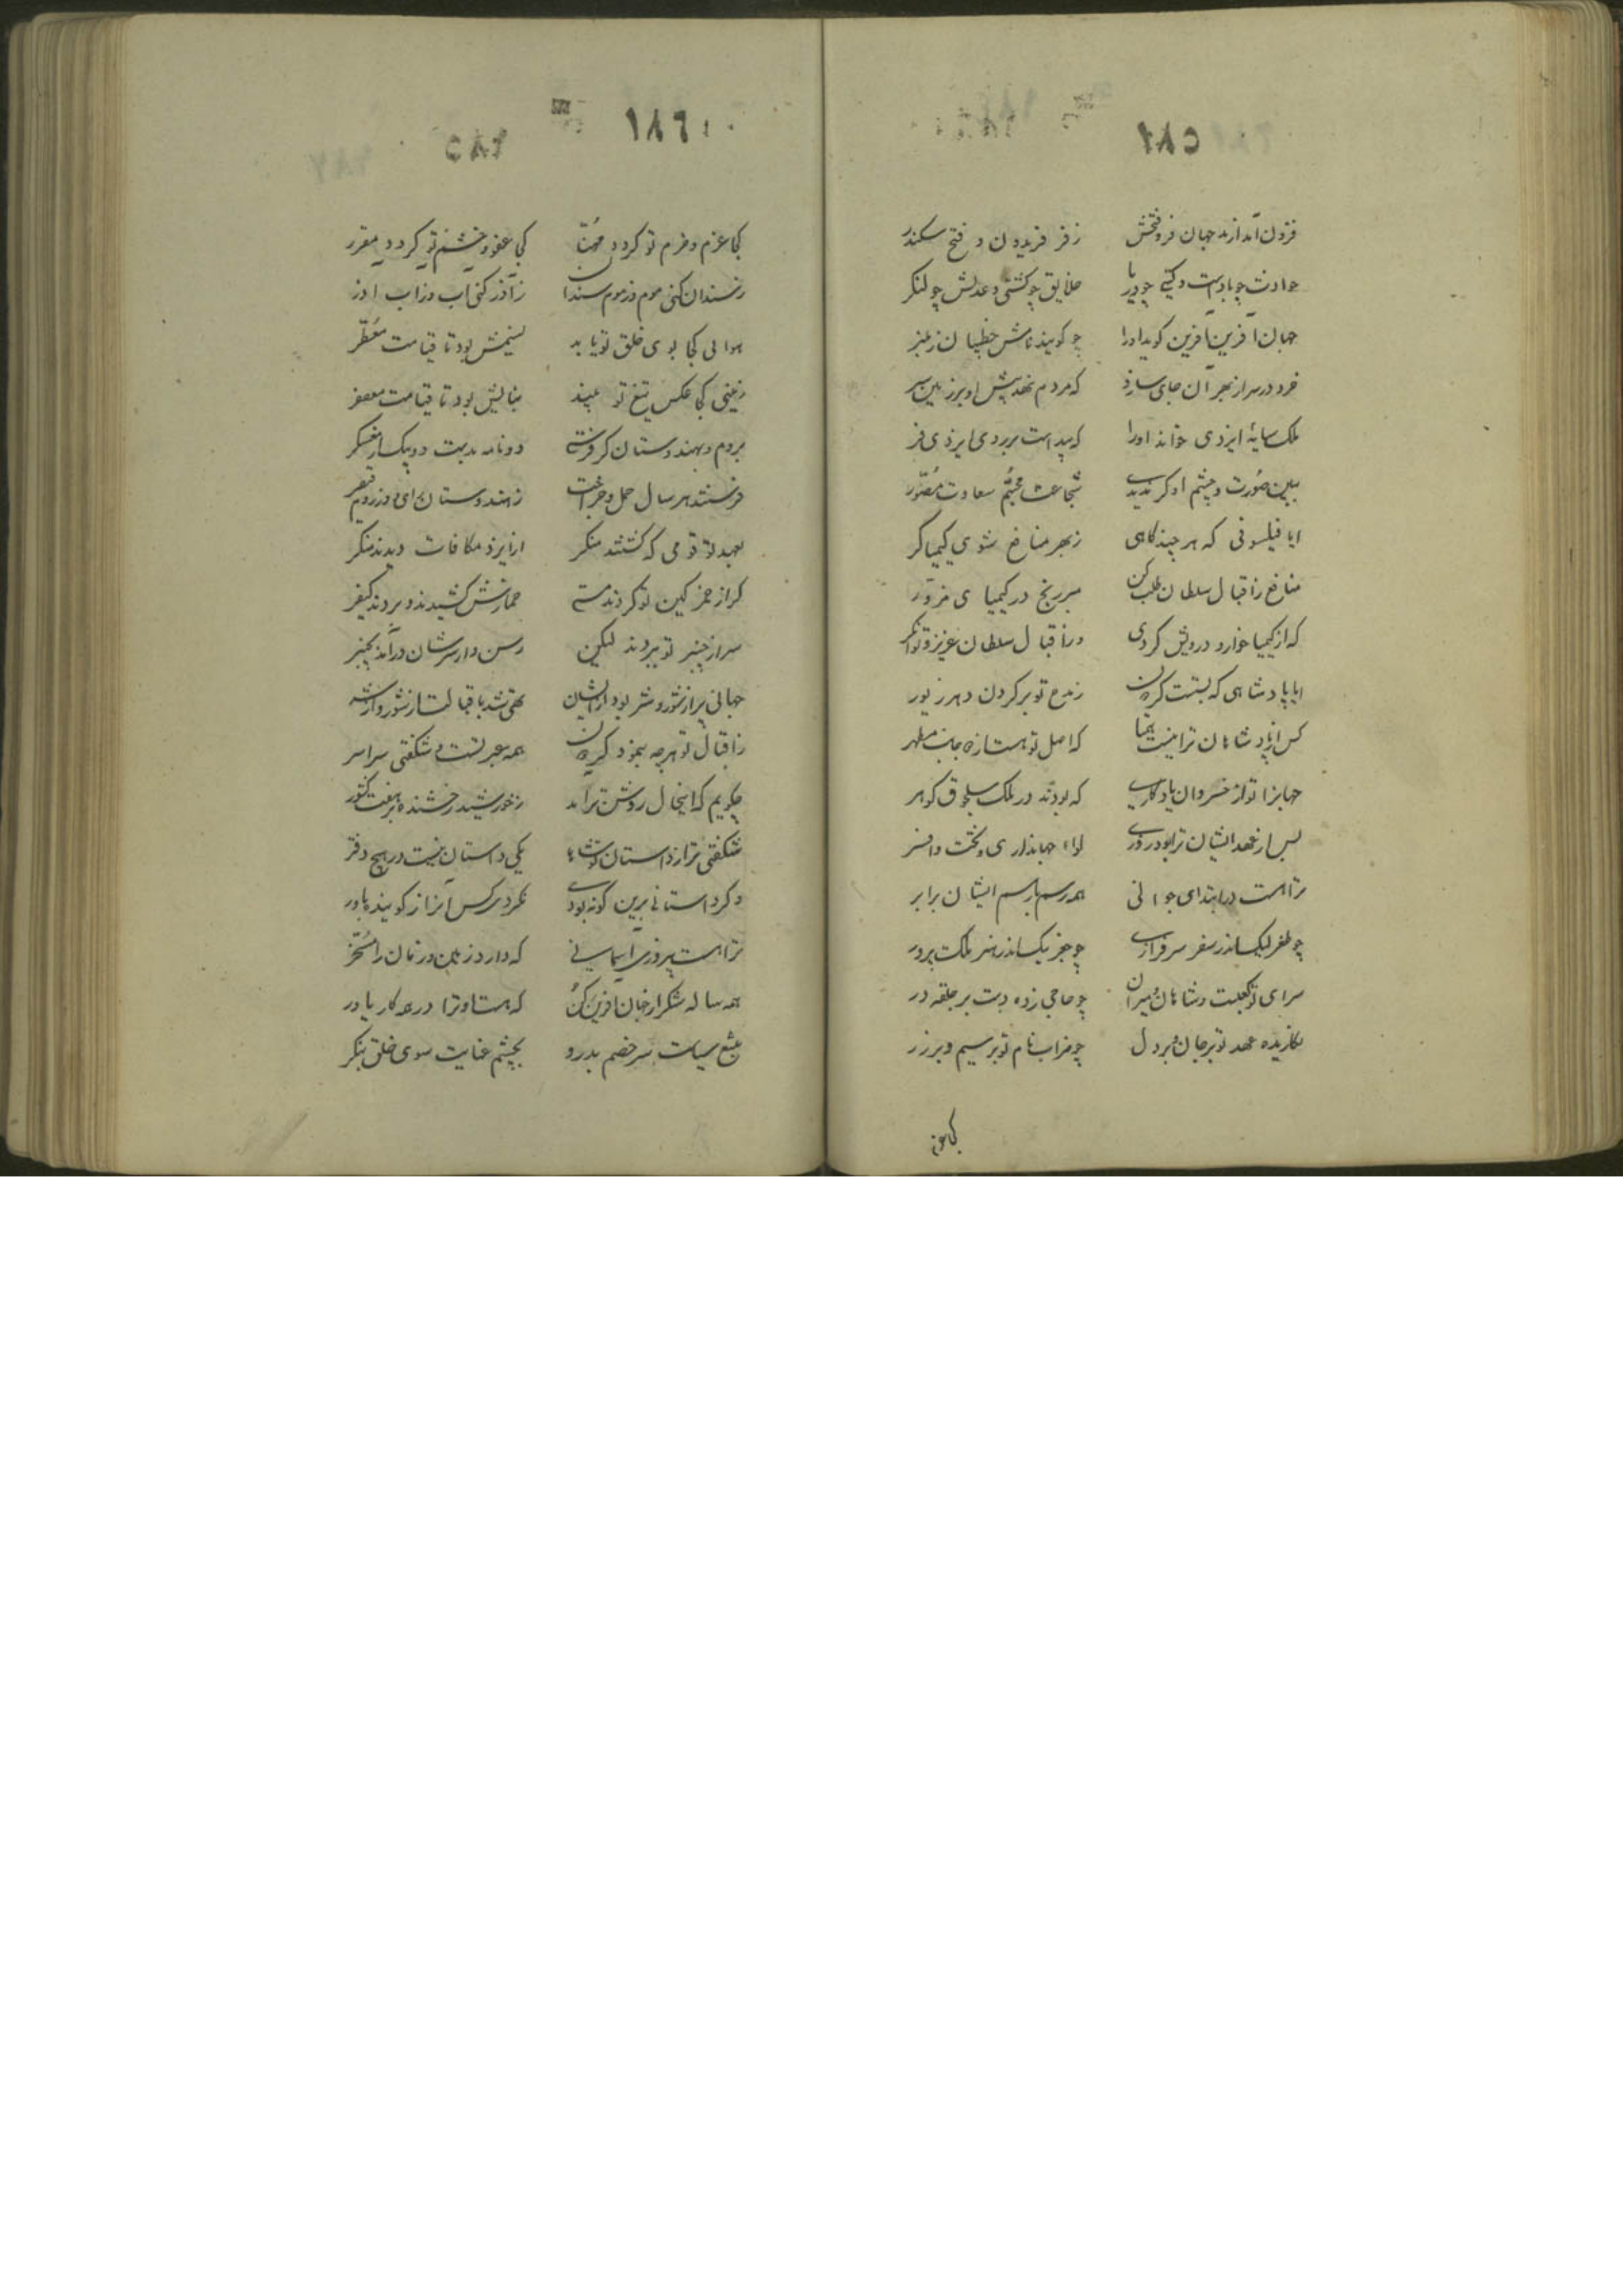 ١٨٥
فزون آمد از بد جهان فر و فتحش زفر فریدون و فتح سکندر
حوادث چو بادست و گیتی چو دریا خلایق چو کشتی و عدلش چو لنکر
جهان آفرین آفرین کوید اورا چو کویند نامش خطیبان زمنبر
خرد در سر از بهر آن جای سازد که مردم نهد پیش او بر زمین سر
ملک سایهٔ ایزدی خواند اورا که پیداست بر وی ایزدی فر
ببین صورت و چشم او کر ندیدی شجاعت مجسم سعادت مصور
ایا فیلسوفی که هر چند کاهی زبهر منافع شوی کیمیاکر
منافع زاقبال سلطان طلب کن مبر رنج در کیمیای مزور
که از کیمیا خوار و درویش کردی وز اقبال سلطان عزیز و توانکر
ایا پادشاهی که بستت کردون زمدح تو بر کردن دهر زیور
کس از پادشاهان ترا نیست همتا که اصل تو هست از دو جانب مطهر
جهانرا تو از خسروان یادکاری که بودند در ملک سلجوق کوهر
پس از عهد ایشان ترا بود روزی لوا و جهانداری و تخت و افسر
ترا هست در ابتدای جوانی همه رسم با رسم ایشان برابر
چو طغرلبک اندر سفر سرفرازی چو جغربیک اندر هنر ملک پرور
سرای تو کعبست و شاهان و میران چو حاجی زده دست بر حلقه در
نکاریده عهد تو بر جان و بر دل چو ضراب نام تو بر سیم و بر زر
کجا عزم
١٨٦
کجا عزم و حزم تو کردد مهنا کجا عفو و خشم تو کردد مقرر
زسندان کنی موم وز موم سندان زآذر کنی آب وز آب آذر
هوائی کجا بوی خلق تو یابد نسیمش بود تا قیامت معطر
زمینی کجا عکس تیغ تو بیند نباتش بود تا قیامت معصفر
بروم و بهندوستان کر فرستی دو نامه بدست دو پیک از عسکر
فرستند هر سال حمل و خراجت زهندوستان رای و از روم قیصر
بعهد تو قومی که کشتند منکر از ایزد مکافات دیدند منکر
کر از خمر کین تو کردند مستی خمارش کشیدند و بردند کیفر
سر از چنبر تو ببردند لیکن رسن وار سرشان درآمد بچنبر
جهانی پر از شور و شر بود ازیشان تهی شد باقبالت از شور و از شر
زاقبال تو هرچه بنمود کردون همه عبرتست و شکفتی سراسر
چکویم که اینحال روشن تر آمد زخورشید رخشنده بر هفت کشور
شکفتی تر از داستان تو شاها یکی داستان نیست در هیچ دفتر
و کر داستانی برین کونه بودی نکردی کس آنرا ز کوینده باور
ترا هست پیروزی آسمانی که دارد زمین و زمان را مسخر
همه ساله شکر از جهان آفرین کن که هست او ترا در همه کار یاور
بتیغ سیاست سر خصم بدرو بچشم عنایت سوی خلق بنکر